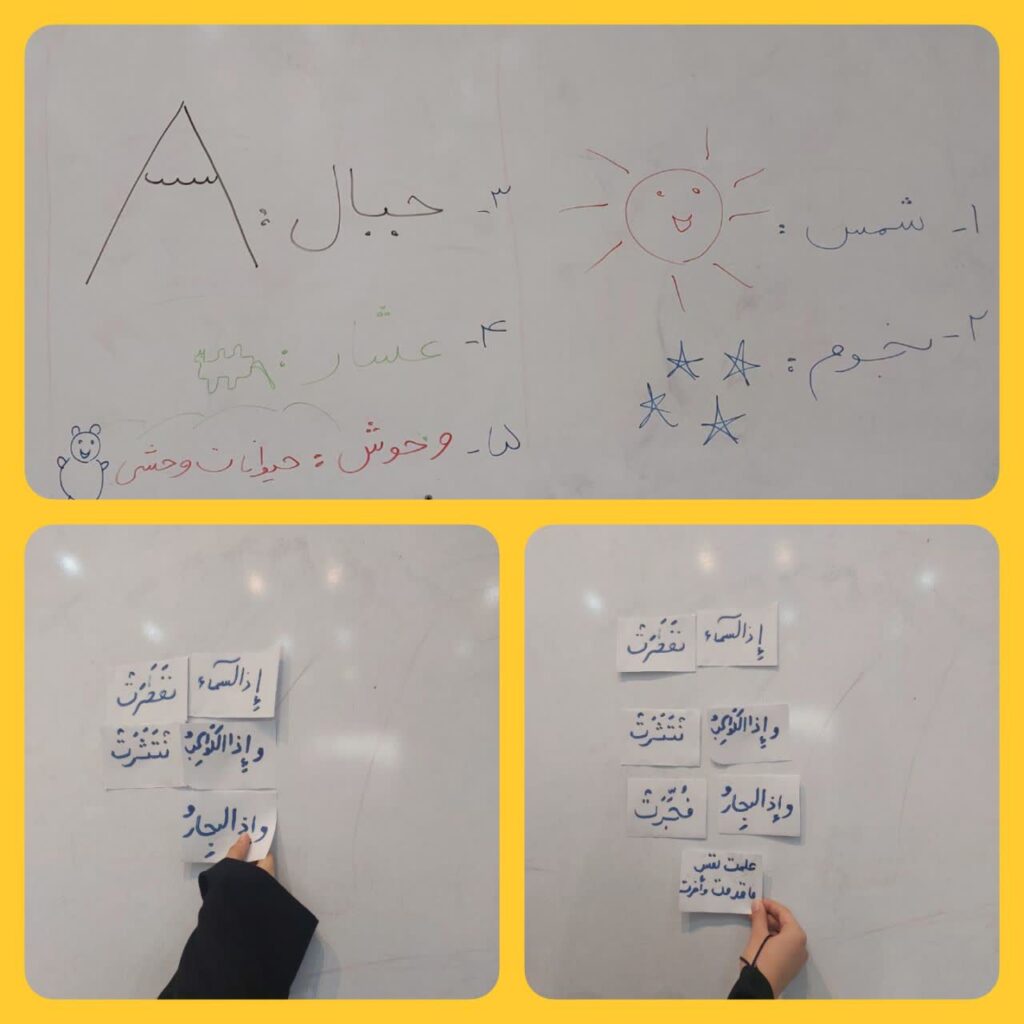 ۱- شمس :
۲- نجوم :
۳- جبال :
۴- عشار :
۵- وحوش : حیوانات وحشی
إِذالسمآء نفَطَرَتْ
وإِذاالكَوٰكِبُ نْتَثَرَتْ
وإِذاالبِحارُ
إِذالسمآء نفَطَرَتْ
وإِذاالكَوٰكِبُ نْتَثَرَتْ
وإِذاالبِحارُ فُجِّرَتْ
علمت نفس
ماقدمت وأخرت